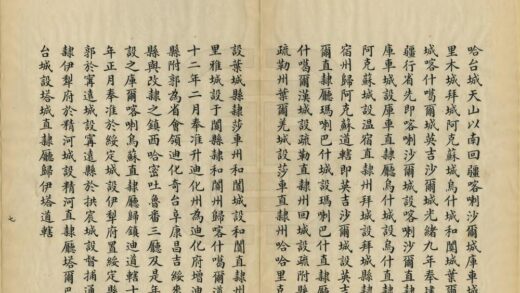 哈台城天山以南回疆喀喇沙爾城庫車城
里木城拜城阿克蘇城烏什城和闐城葉爾
城喀什噶爾城英吉沙爾城光緒九年奉建
疆行省先即喀喇沙爾城設喀喇沙爾直
庫車城設庫車直隸廳烏什城設烏什直
阿克蘇城設溫宿直隸州拜城設拜城縣隸
宿州歸阿克蘇道轄即英吉沙爾城設英吉
爾直隸廳瑪喇巴什城設瑪喇巴什直隸
什噶爾漢城設疏勒直隸州回城設疏附縣
疏勒州葉爾羌城設莎車直隸州哈哈里克
設葉城縣隸莎車州和闐城設和闐直隸州
里雅城設于闐縣隸和闐州歸喀什噶爾道
十二年二月奉准升迪化州為迪化府增迪
縣附郭為省會領迪化奇台阜康昌吉綏來
縣與改隸之鎮西哈密吐魯番三廳及是年
設之庫爾喀喇烏蘇直隸廳歸鎮迪道轄十
年正月奉准於綏定城設伊犁府置綏定縣
郭於寧遠城設寧遠縣於拱宸城設督捕通
隸伊犁府於精河城設精河直隸廳塔爾巴
台城設塔城直隸廳歸伊塔道轄
七